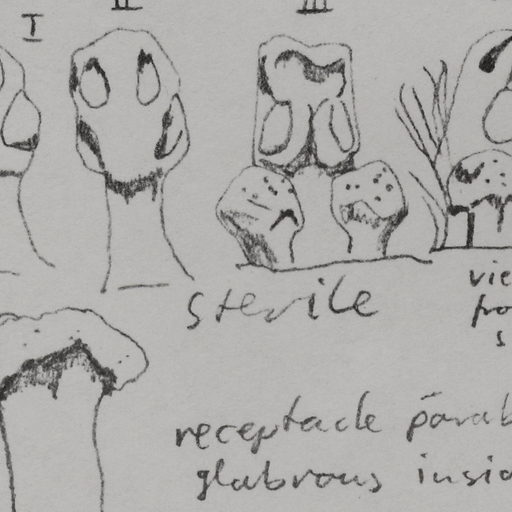 I II III
sterile
vie
fro
s
receptacle parab
glabrous insid